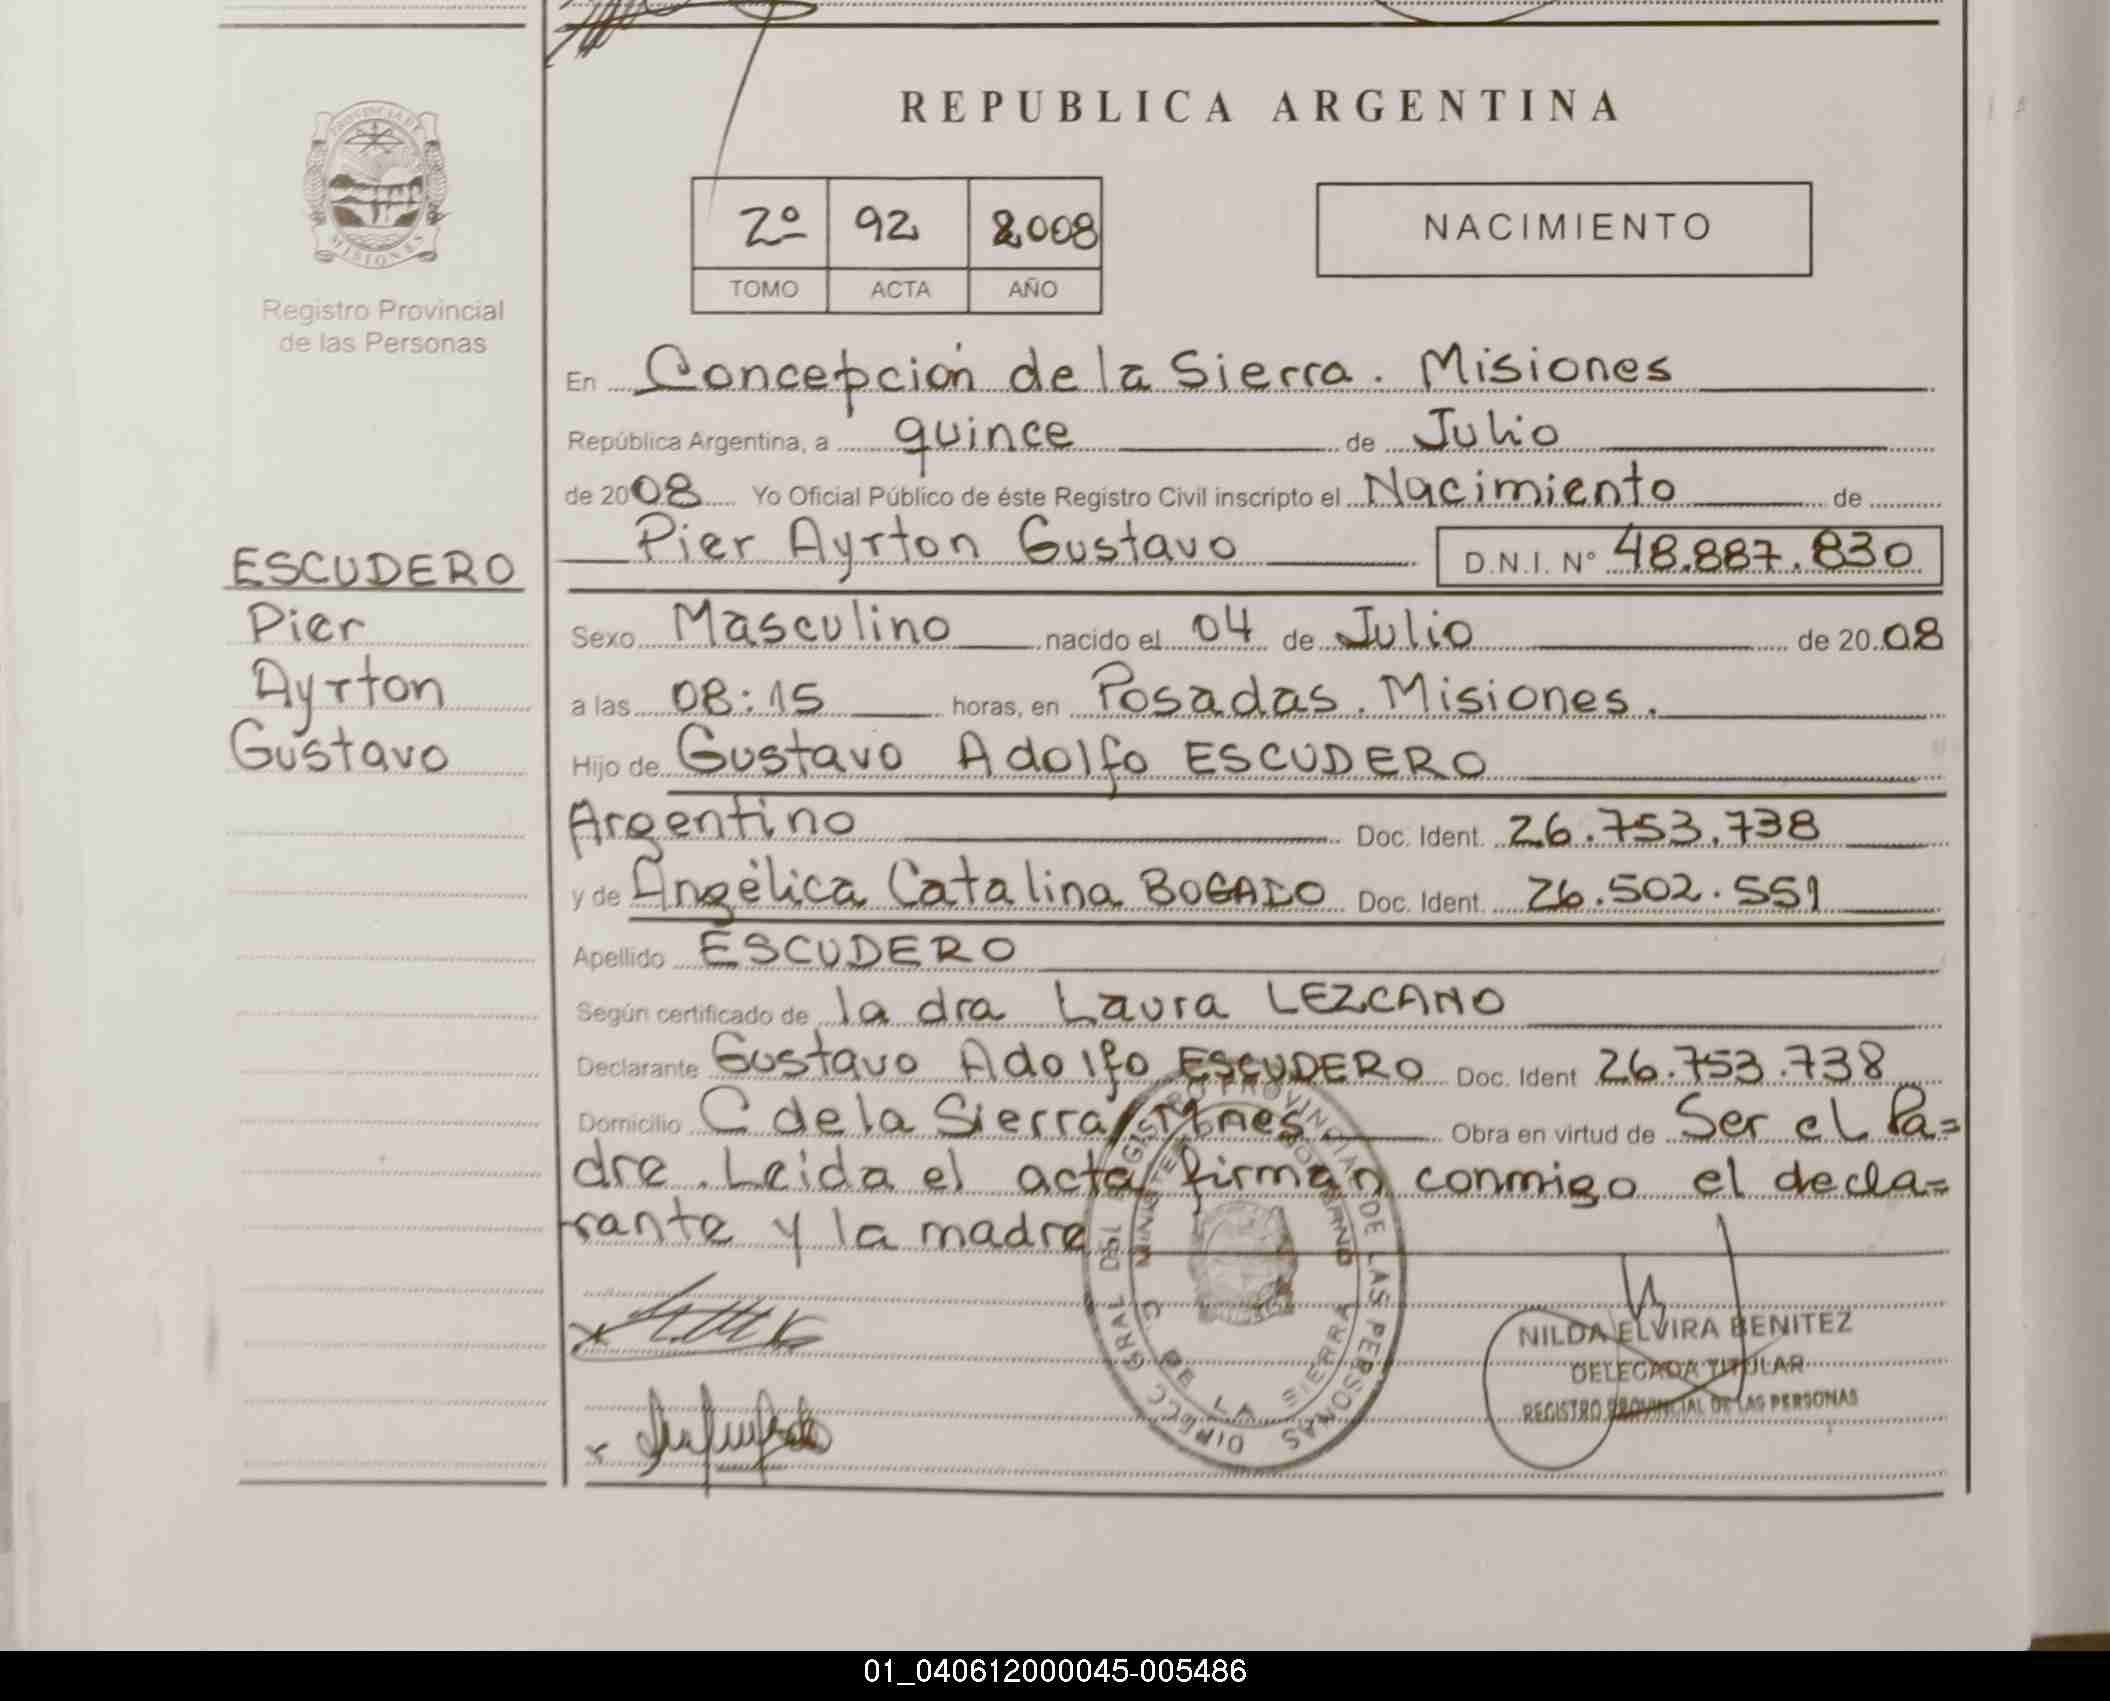 REPUBLICA ARGENTINA
PROVINCIA DE
MISIONES
Registro Provincial
de las Personas
2º 92 2008
TOMO ACTA AÑO
NACIMIENTO
En Concepción de la Sierra. Misiones
República Argentina, a quince de Julio
de 2008 Yo Oficial Público de éste Registro Civil inscripto el Nacimiento de
Pier Ayrton Gustavo D.N.I. Nº 48.887.830
ESCUDERO
Pier
Ayrton
Gustavo
Sexo Masculino nacido el 04 de Julio de 2008
a las 08:15 horas, en Posadas. Misiones.
Hijo de Gustavo Adolfo ESCUDERO
Argentino Doc. Ident. 26.753.738
y de Angélica Catalina BOGADO Doc. Ident. 26.502.551
Apellido ESCUDERO
Según certificado de la dra Laura LEZCANO
Declarante Gustavo Adolfo ESCUDERO Doc. Ident 26.753.738
Domicilio C de la Sierra Mnes Obra en virtud de Ser el Pa=
dre. Leida el acta firman conmigo el decla=
rante y la madre
DIRECC GRAL DEL REGISTRO PROVINCIAL DE LAS PERSONAS
MINISTERIO DE GOBIERNO
C. DE LA SIERRA
NILDA ELVIRA BENITEZ
DELEGADA TITULAR
REGISTRO PROVINCIAL DE LAS PERSONAS
01_040612000045-005486